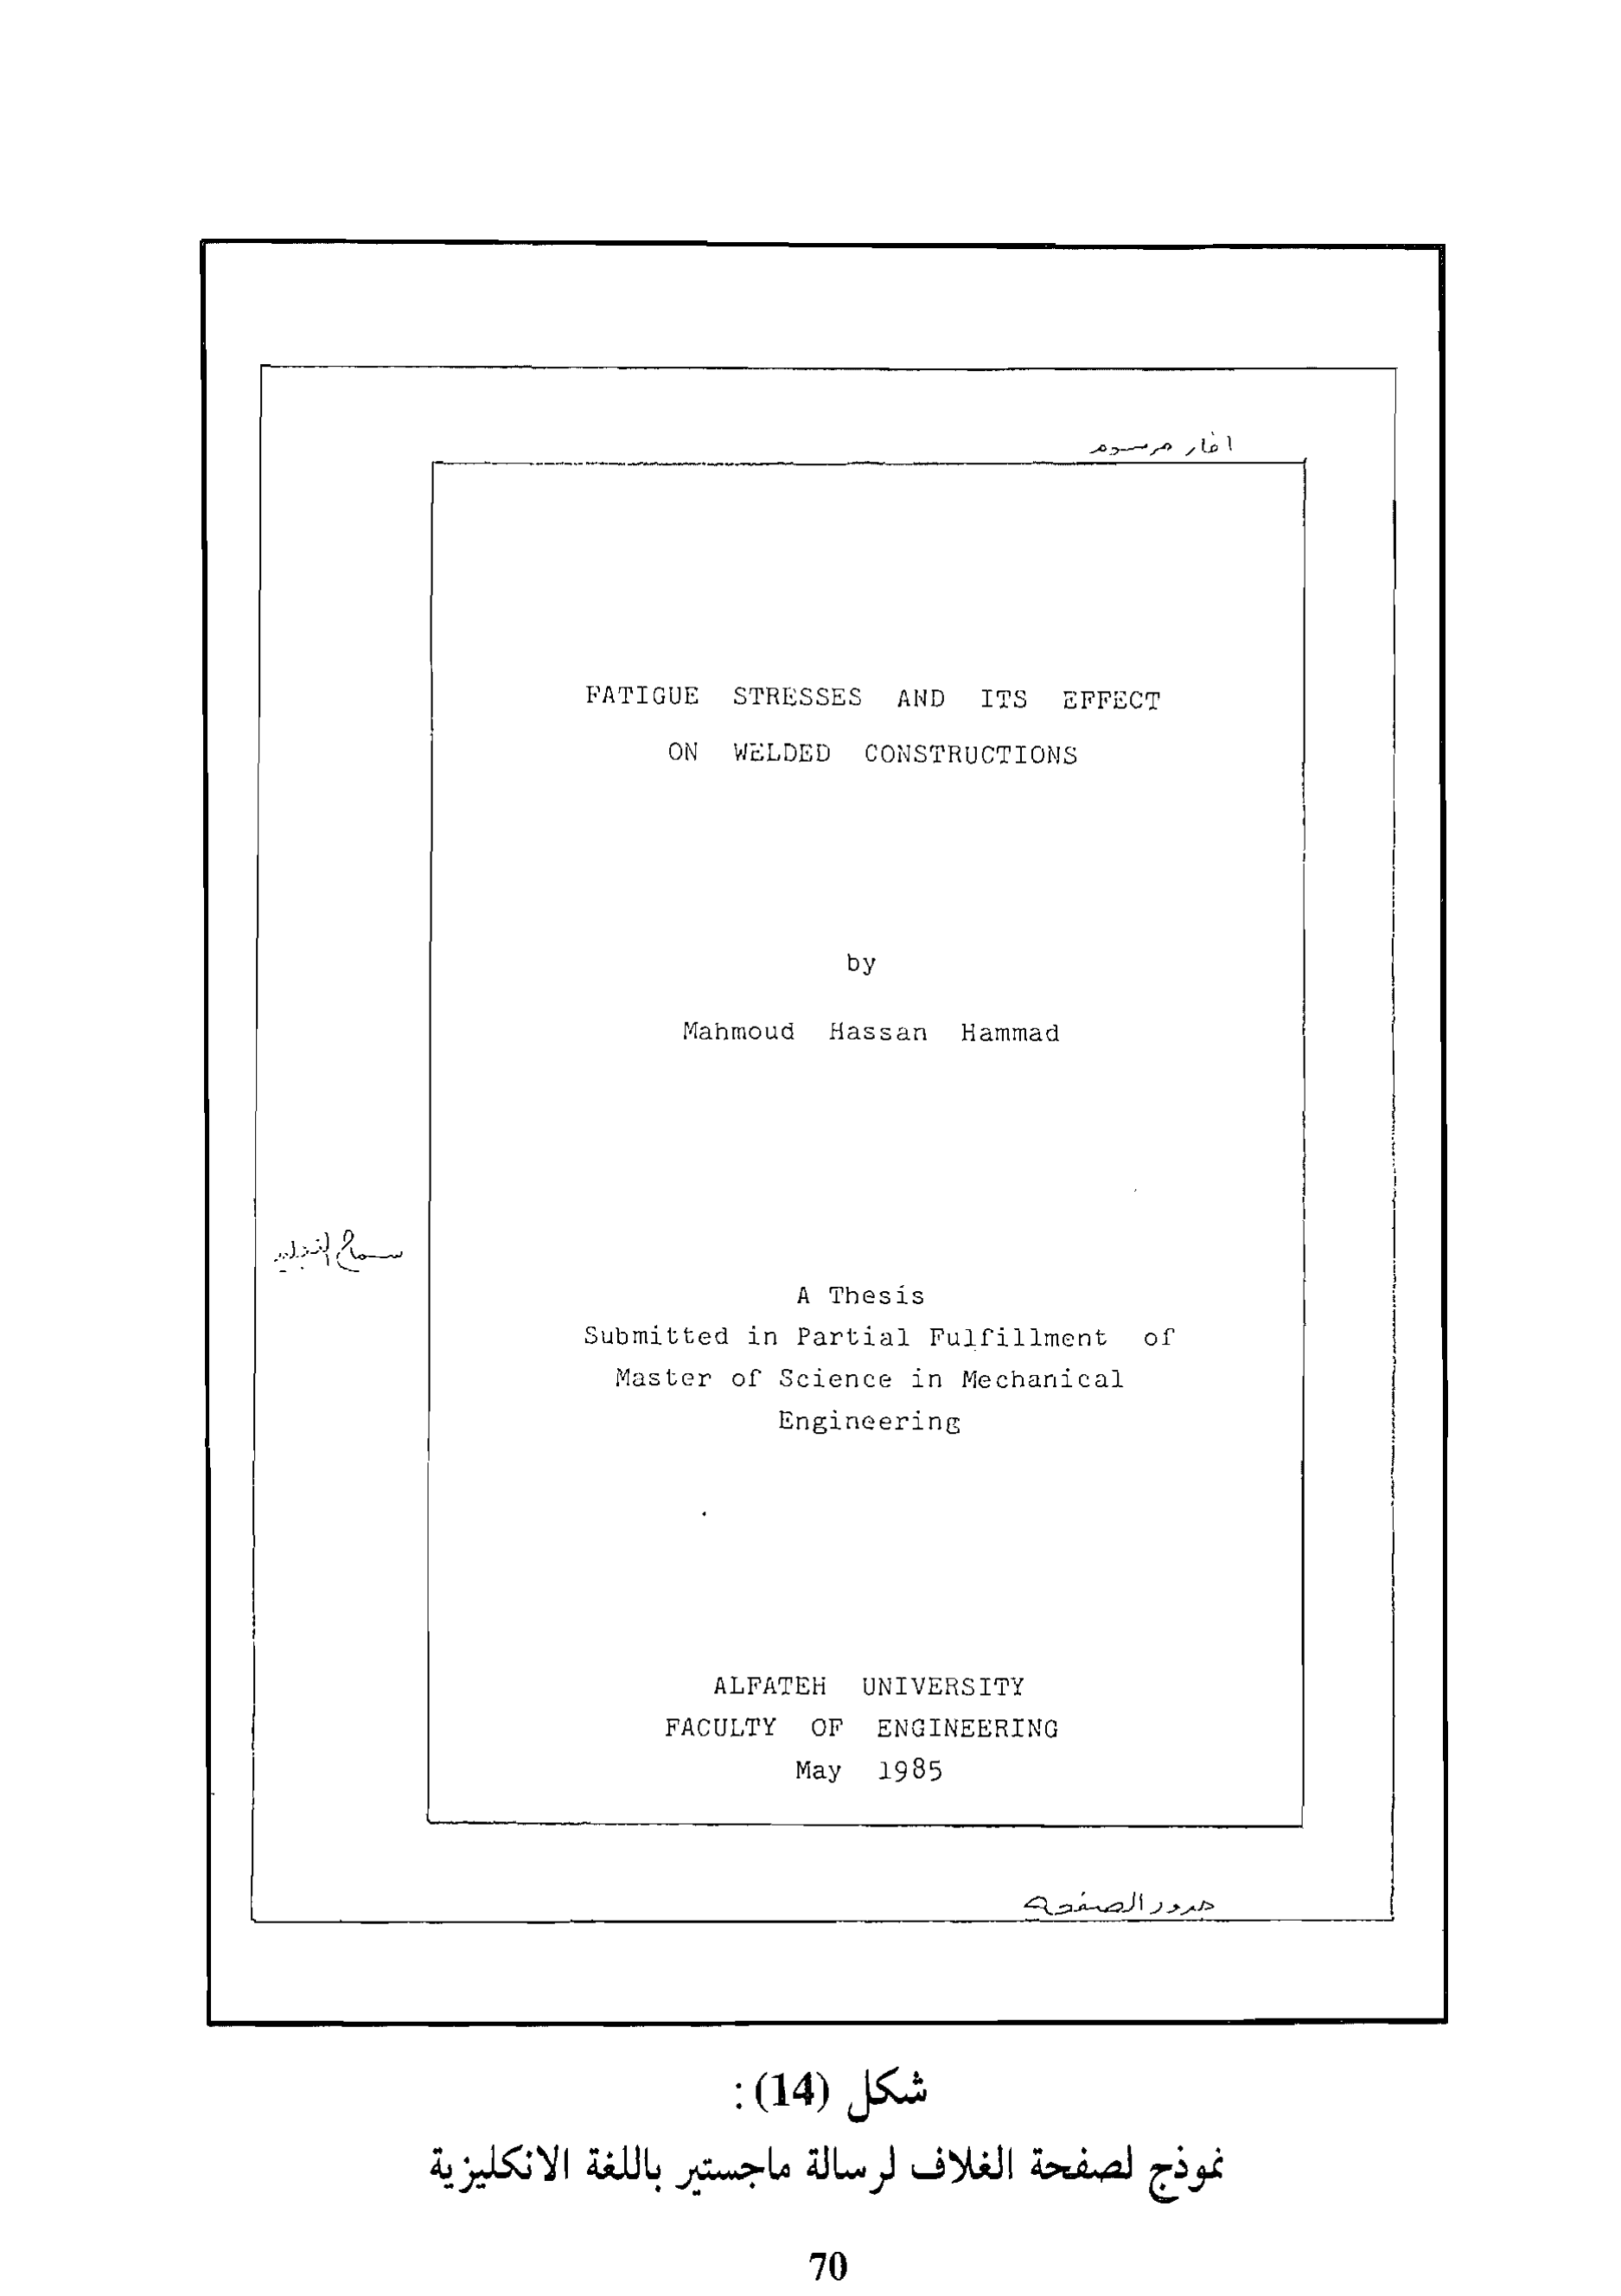 اطار مرسوم
FATIGUE STRESSES AND ITS EFFECT
ON WELDED CONSTRUCTIONS
by
Mahmoud Hassan Hammad
سماح التجليد
A Thesis
Submitted in Partial Fulfillment of
Master of Science in Mechanical
Engineering
ALFATEH UNIVERSITY
FACULTY OF ENGINEERING
May 1985
حدود الصفحة
شكل (14) :
نموذج لصفحة الغلاف لرسالة ماجستير باللغة الانكليزية
70